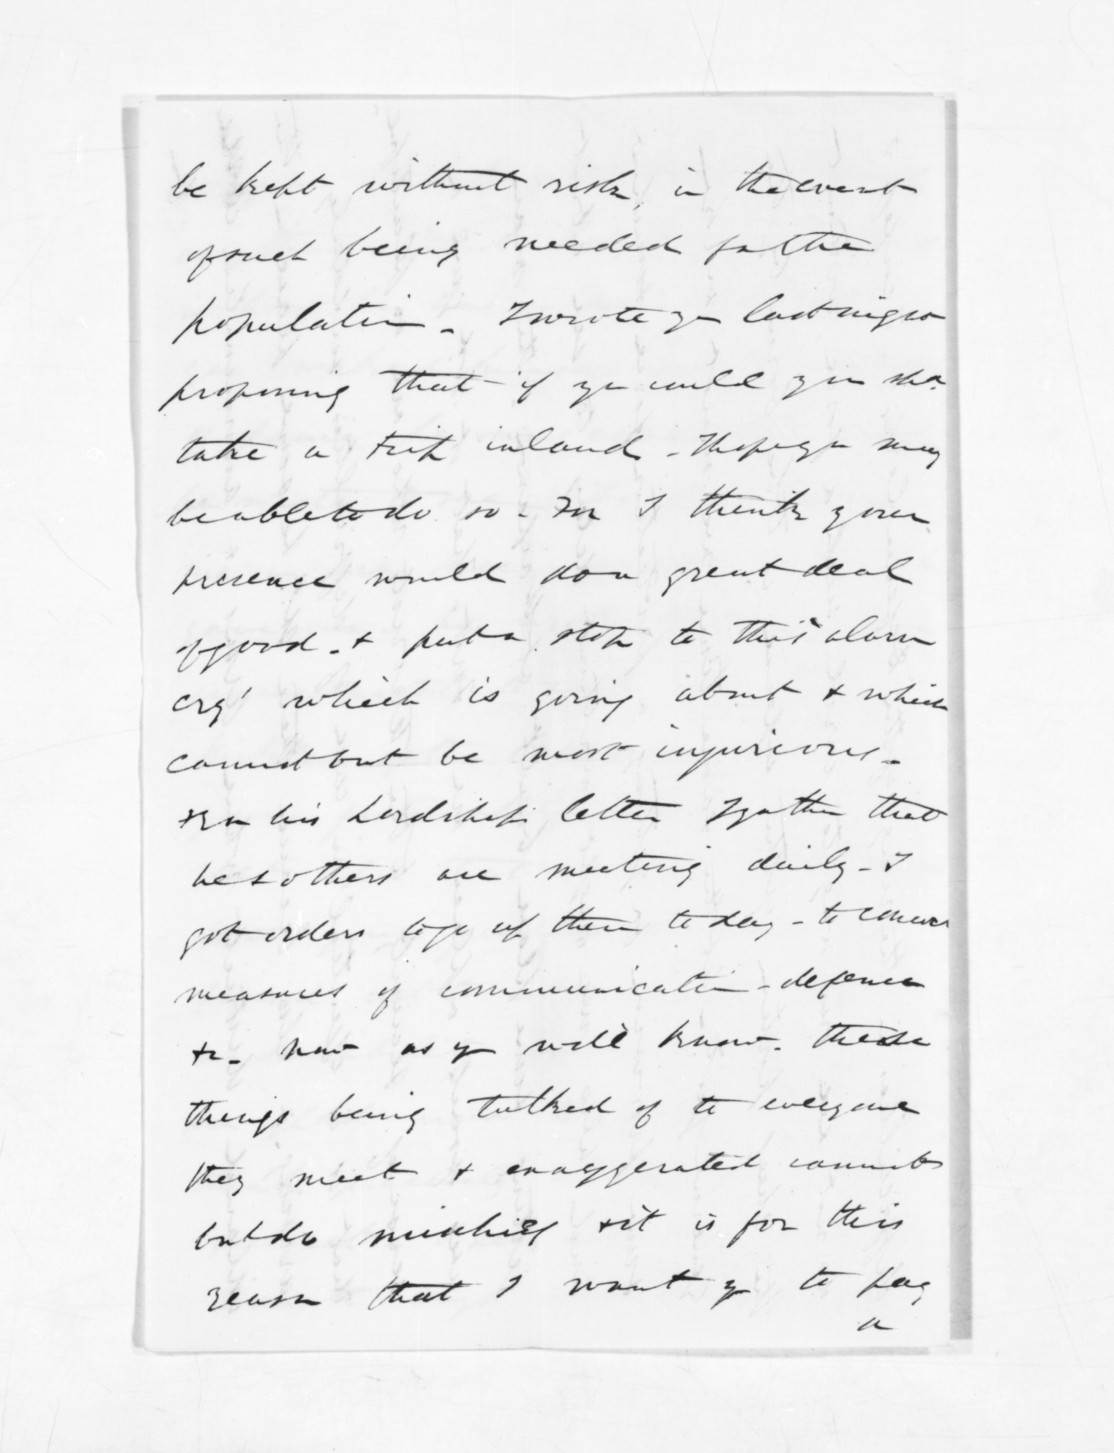 be kept without risk, in the event
of such being needed for the
population - I wrote yu last night
proposing that if yu could yu shd.
take a trip inland - I hope yu may
be able to do so - for I think your
presence would do a great deal
of good - & put a stop to this 'alarm
cry' which is going about & which
cannot but be most injurious -
From his Lordship's letter I gather that
he & others are meeting daily - I
got orders to go up there today - to concert
measures of communication - defence
&c - Now as yu well know. these
things being talked of to everyone
they meet & exaggerated cannot
but do mischief & it is for this
reason that I want yu to pay
a